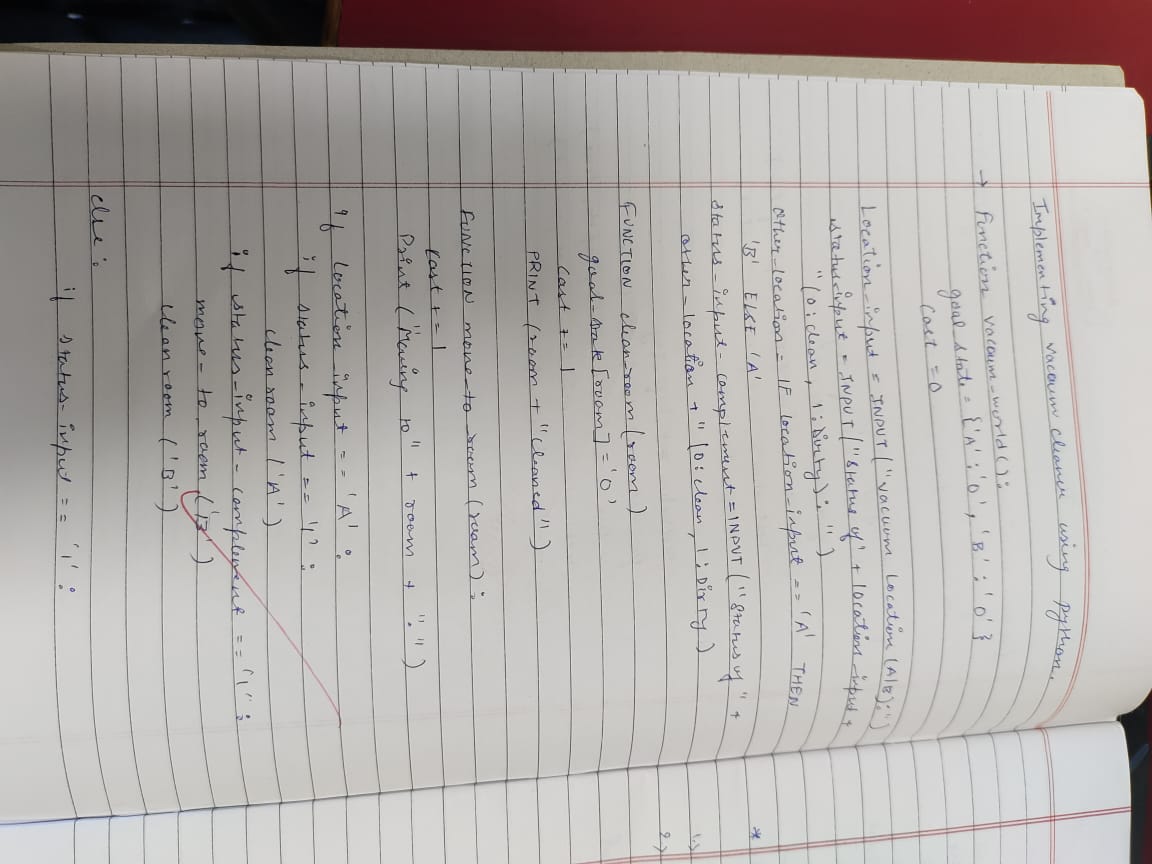 Implementing vacuum cleaner using python.
→ Function vacuum-world():
goal state = {'A':'0', 'B':'0'}
cost = 0
Location-input = INPUT ("vacuum location (A/B):")
status-input = INPUT ("status of" + location-input +
"(0:clean, 1:Dirty): ")
other-location = IF location-input == 'A' THEN
'B' ELSE 'A'
status-input-complement = INPUT ("status of" +
other-location + "(0:clean, 1:Dirty)
FUNCTION clean-room(room)
goal-state[room] = '0'
cost += 1
PRINT (room + "cleaned")
FUNCTION move-to room (room):
cost += 1
Print ("Moving to" + room + ".")
if location-input == 'A':
if status-input == '1':
clean room ('A')
if status-input-complement == '1':
move-to room ('B')
clean room ('B')
else:
if status-input == '1':
*
1>
2>